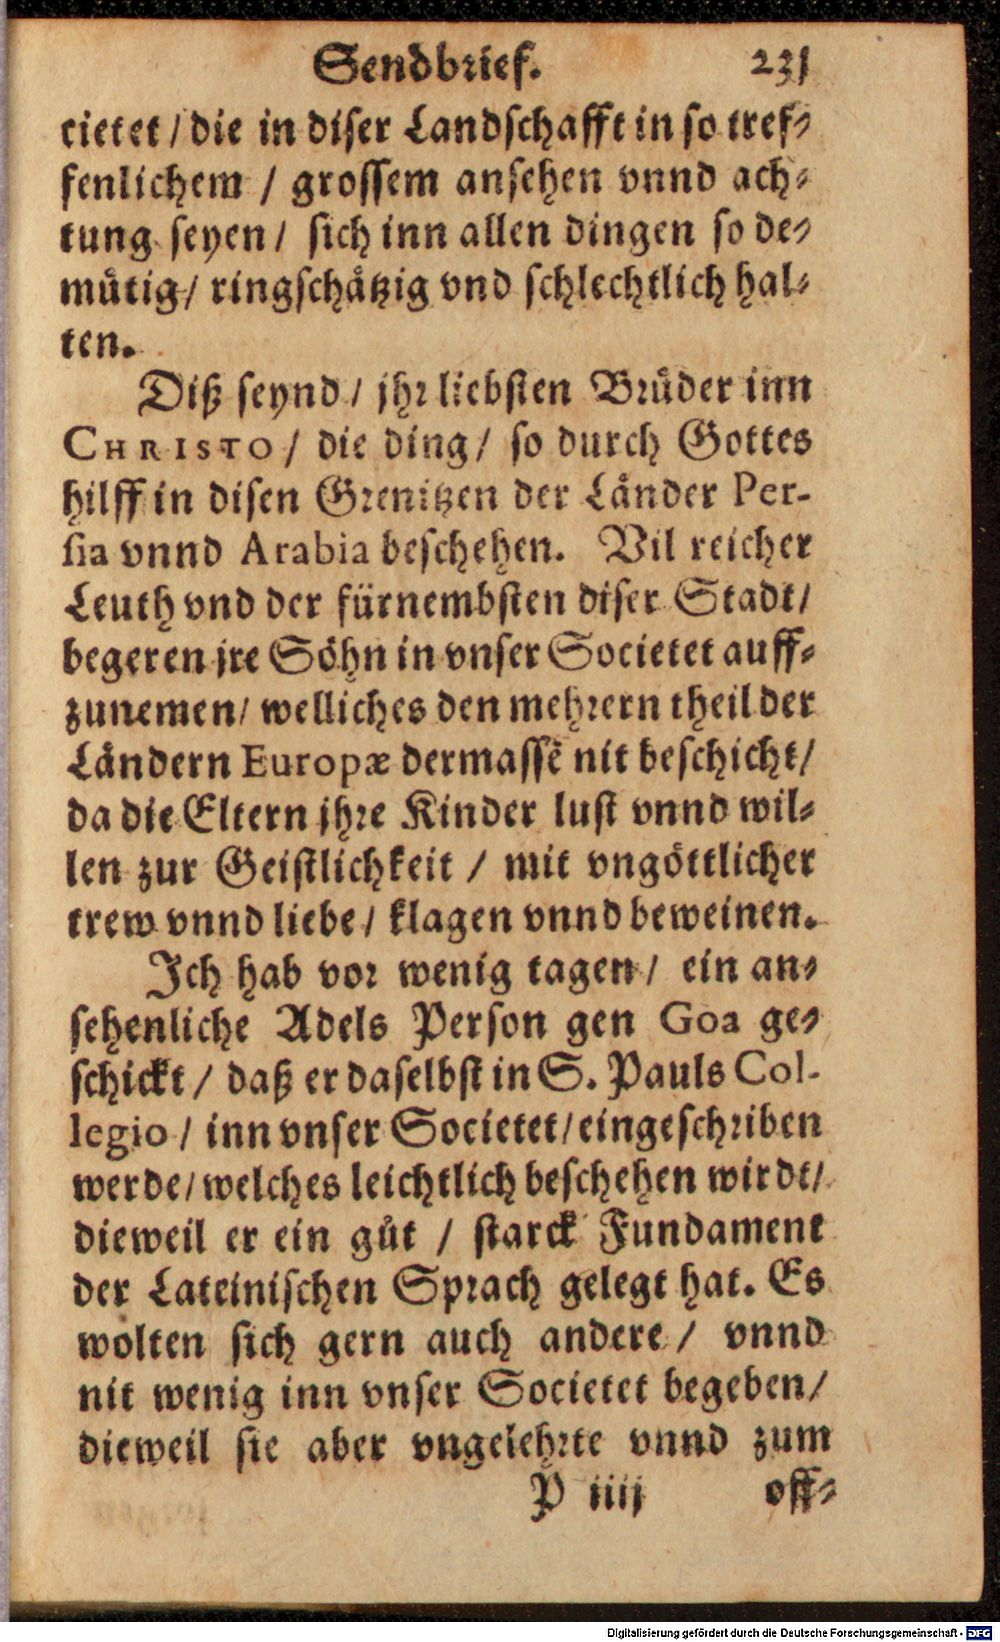 Sendbrief. 231
cietet / die in diser Landschafft in so tref⸗
fenlichem / grossem ansehen vnnd ach⸗
tung seyen / sich inn allen dingen so de⸗
muͤtig / ringschaͤtzig vnd schlechtlich hal⸗
ten.
Diß seynd / jhr liebsten Bruͤder inn
CHRISTO / die ding / so durch Gottes
hilff in disen Grenitzen der Laͤnder Per-
sia vnnd Arabia beschehen. Vil reicher
Leuth vnd der fürnembsten diser Stadt /
begeren jre Soͤhn in vnser Societet auff⸗
zunemen / welliches den mehrern theil der
Laͤndern Europæ dermassẽ nit beschicht /
da die Eltern jhre Kinder lust vnnd wil⸗
len zur Geistlichkeit / mit vngoͤttlicher
trew vnnd liebe / klagen vnnd beweinen.
Ich hab vor wenig tagen / ein an⸗
sehenliche Adels Person gen Goa ge⸗
schickt / daß er daselbst in S. Pauls Col-
legio / inn vnser Societet / eingeschriben
werde / welches leichtlich beschehen wirdt /
dieweil er ein guͤt / starck Fundament
der Lateinischen Sprach gelegt hat. Es
wolten sich gern auch andere / vnnd
nit wenig inn vnser Societet begeben /
dieweil sie aber vngelehrte vnnd zum
P iiij off⸗
Digitalisierung gefördert durch die Deutsche Forschungsgemeinschaft - DFG